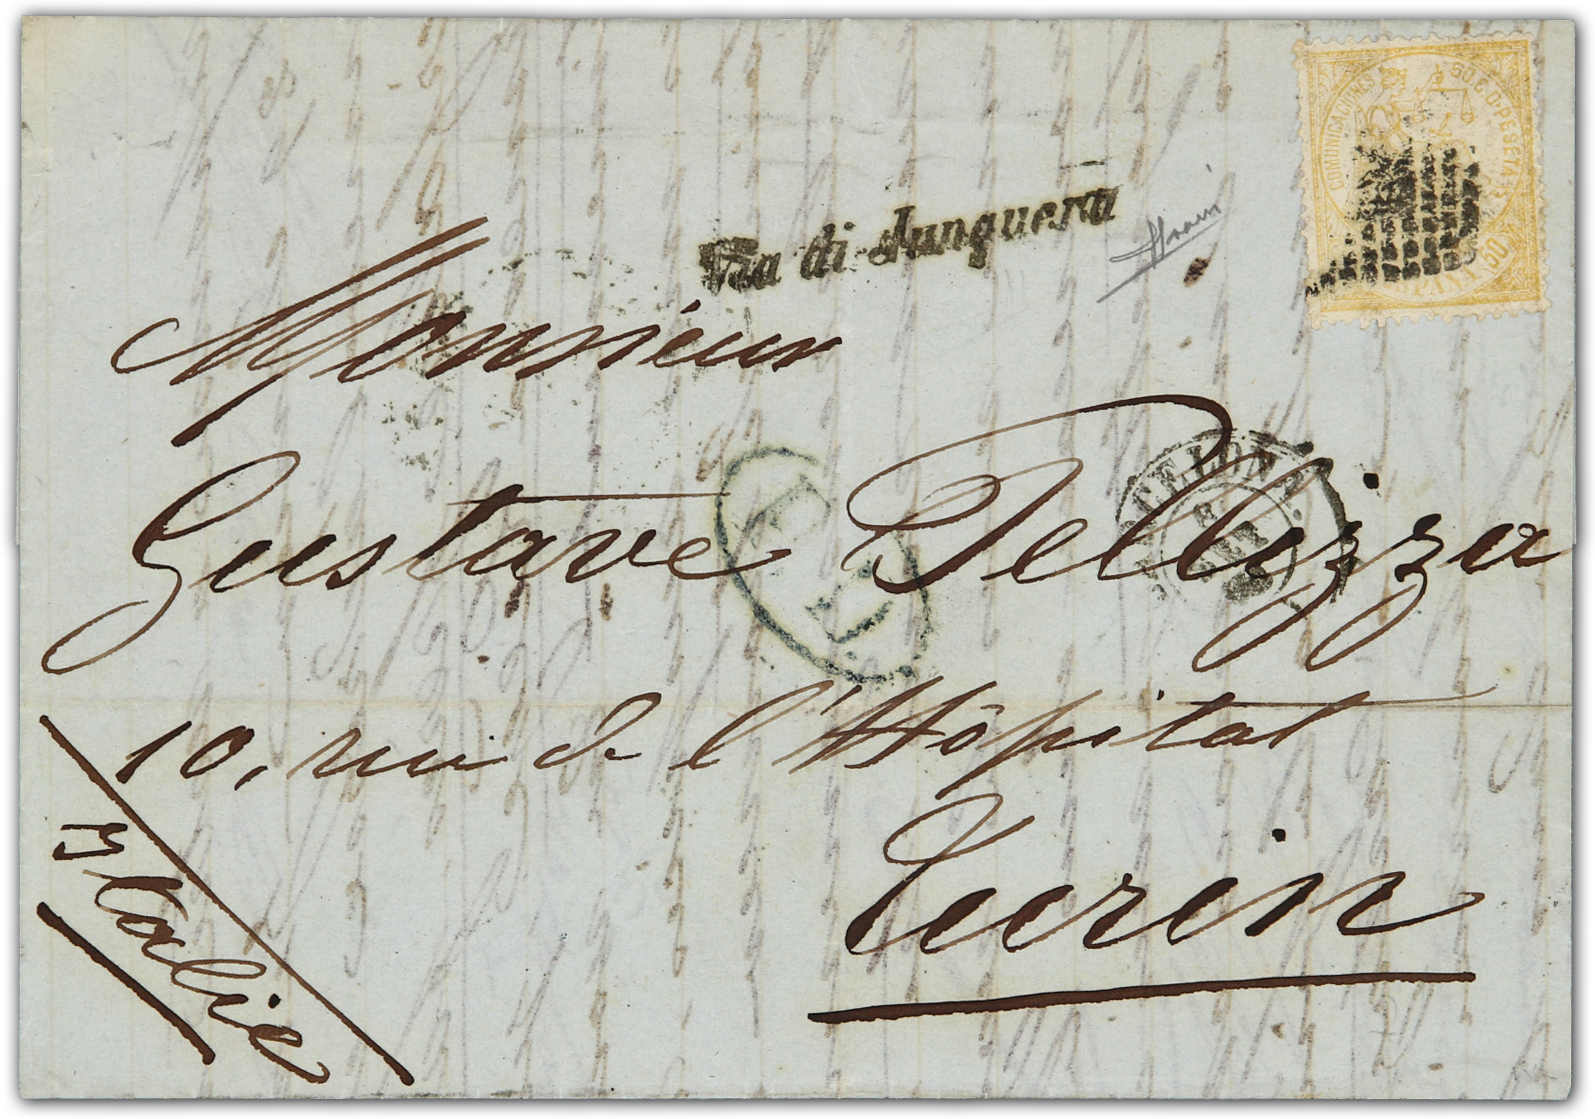 COMUNICACIONES 50 C. D. PESETA
Via di Junquera
Monsieur
Gustave Pellizza
BARCELONA
10, rue de l'Hôpital
Turin
Italie